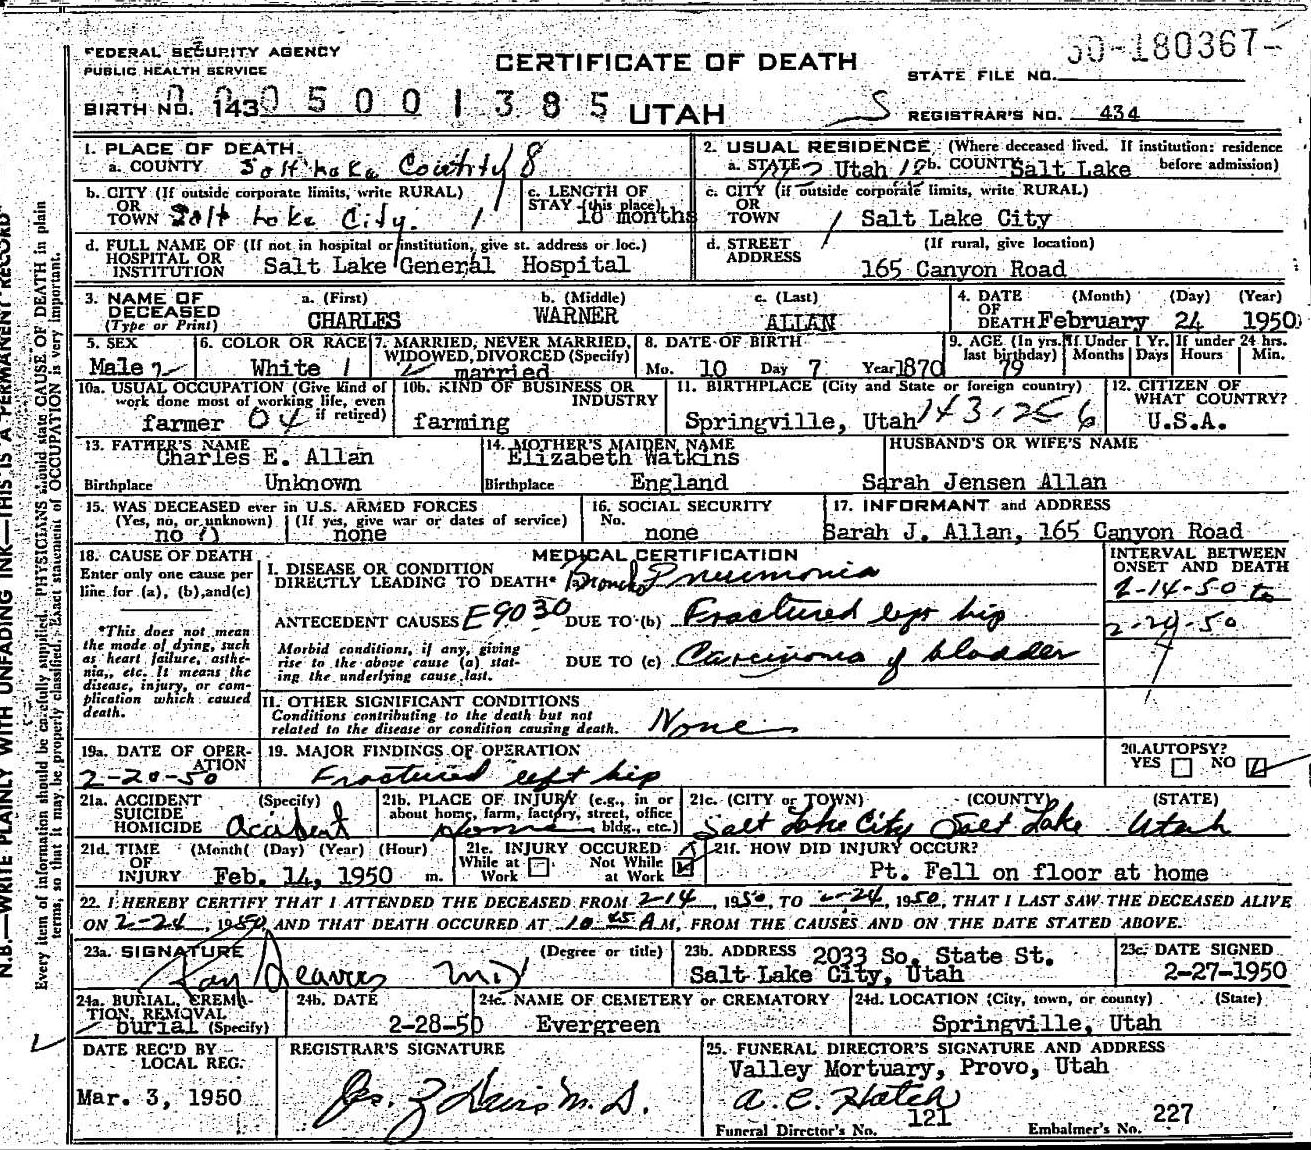 FEDERAL SECURITY AGENCY
PUBLIC HEALTH SERVICE
CERTIFICATE OF DEATH
STATE FILE NO. 50-180367-
BIRTH NO. 143 0005001385 UTAH
S REGISTRAR'S NO. 434
1. PLACE OF DEATH.
a. COUNTY Salt Lake County 8
2. USUAL RESIDENCE (Where deceased lived. If institution: residence before admission)
a. STATE Utah 18 b. COUNTY Salt Lake
b. CITY (If outside corporate limits, write RURAL)
OR
TOWN Salt Lake City. 1
c. LENGTH OF
STAY (this place)
18 months
c. CITY (if outside corporate limits, write RURAL)
OR
TOWN 1 Salt Lake City
d. FULL NAME OF (If not in hospital or institution, give st. address or loc.)
HOSPITAL OR
INSTITUTION Salt Lake General Hospital
d. STREET (If rural, give location)
ADDRESS 165 Canyon Road
3. NAME OF
DECEASED
(Type or Print)
a. (First) b. (Middle) c. (Last)
CHARLES WARNER ALLAN
4. DATE (Month) (Day) (Year)
OF
DEATH February 24 1950
5. SEX
Male
6. COLOR OR RACE
White 1
7. MARRIED, NEVER MARRIED,
WIDOWED, DIVORCED (Specify)
married
8. DATE OF BIRTH
Mo. 10 Day 7 Year 1870
9. AGE (In yrs. last birthday)
79
If Under 1 Yr.
Months Days
If under 24 hrs.
Hours Min.
10a. USUAL OCCUPATION (Give kind of
work done most of working life, even
if retired)
farmer 04
10b. KIND OF BUSINESS OR
INDUSTRY
farming
11. BIRTHPLACE (City and State or foreign country)
Springville, Utah 143-25-6
12. CITIZEN OF
WHAT COUNTRY?
U.S.A.
13. FATHER'S NAME
Charles E. Allan
Birthplace Unknown
14. MOTHER'S MAIDEN NAME
Elizabeth Watkins
Birthplace England
HUSBAND'S OR WIFE'S NAME
Sarah Jensen Allan
15. WAS DECEASED ever in U.S. ARMED FORCES
(Yes, no, or unknown) (If yes, give war or dates of service)
no 0 none
16. SOCIAL SECURITY
No. none
17. INFORMANT and ADDRESS
Sarah J. Allan, 165 Canyon Road
18. CAUSE OF DEATH
Enter only one cause per
line for (a), (b), and (c)
*This does not mean
the mode of dying, such
as heart failure, asthe-
nia, etc. It means the
disease, injury, or com-
plication which caused
death.
MEDICAL CERTIFICATION
I. DISEASE OR CONDITION
DIRECTLY LEADING TO DEATH* Broncho Pneumonia
ANTECEDENT CAUSES E9030 DUE TO (b) Fractured left hip
Morbid conditions, if any, giving
rise to the above cause (a) stat-
ing the underlying cause last.
DUE TO (c) Carcinoma of bladder
INTERVAL BETWEEN
ONSET AND DEATH
2-14-50 to
2-24-50
II. OTHER SIGNIFICANT CONDITIONS
Conditions contributing to the death but not
related to the disease or condition causing death. None
19a. DATE OF OPER-
ATION
2-20-50
19. MAJOR FINDINGS OF OPERATION
Fractured left hip
20. AUTOPSY?
YES NO
21a. ACCIDENT (Specify)
SUICIDE
HOMICIDE Accident
21b. PLACE OF INJURY (e.g., in or
about home, farm, factory, street, office
bldg., etc.)
Home
21c. (CITY or TOWN) (COUNTY) (STATE)
Salt Lake City Salt Lake Utah
21d. TIME (Month) (Day) (Year) (Hour)
OF
INJURY Feb. 14, 1950 m.
21e. INJURY OCCURED
While at Work Not While at Work
21f. HOW DID INJURY OCCUR?
Pt. Fell on floor at home
22. I HEREBY CERTIFY THAT I ATTENDED THE DECEASED FROM 2-14, 1950, TO 2-24, 1950, THAT I LAST SAW THE DECEASED ALIVE
ON 2-24, 1950, AND THAT DEATH OCCURED AT 10:45 A M, FROM THE CAUSES AND ON THE DATE STATED ABOVE.
23a. SIGNATURE (Degree or title)
MD
23b. ADDRESS 2033 So. State St.
Salt Lake City, Utah
23c. DATE SIGNED
2-27-1950
24a. BURIAL, CREMA-
TION, REMOVAL
burial (Specify)
24b. DATE
2-28-50
24c. NAME OF CEMETERY or CREMATORY
Evergreen
24d. LOCATION (City, town, or county) (State)
Springville, Utah
DATE REC'D BY
LOCAL REG.
Mar. 3, 1950
REGISTRAR'S SIGNATURE
M.D.
25. FUNERAL DIRECTOR'S SIGNATURE AND ADDRESS
Valley Mortuary, Provo, Utah
A. C. Hatch
Funeral Director's No. 121 Embalmer's No. 227
N.B.—WRITE PLAINLY WITH UNFADING INK—THIS IS A PERMANENT RECORD
Every item of information should be carefully supplied. PHYSICIANS should state CAUSE OF DEATH in plain
terms, so that it may be properly classified. Exact statement of OCCUPATION is very important.